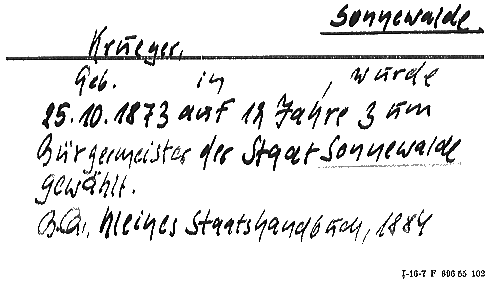 Sonnewalde.
Krueger,
Geb. in , wurde
25.10.1873 auf 12 Jahre zum
Bürgermeister der Stadt Sonnewalde
gewählt.
Kleines Staatshandbuch, 1884
I-16-7 F 696 55 102